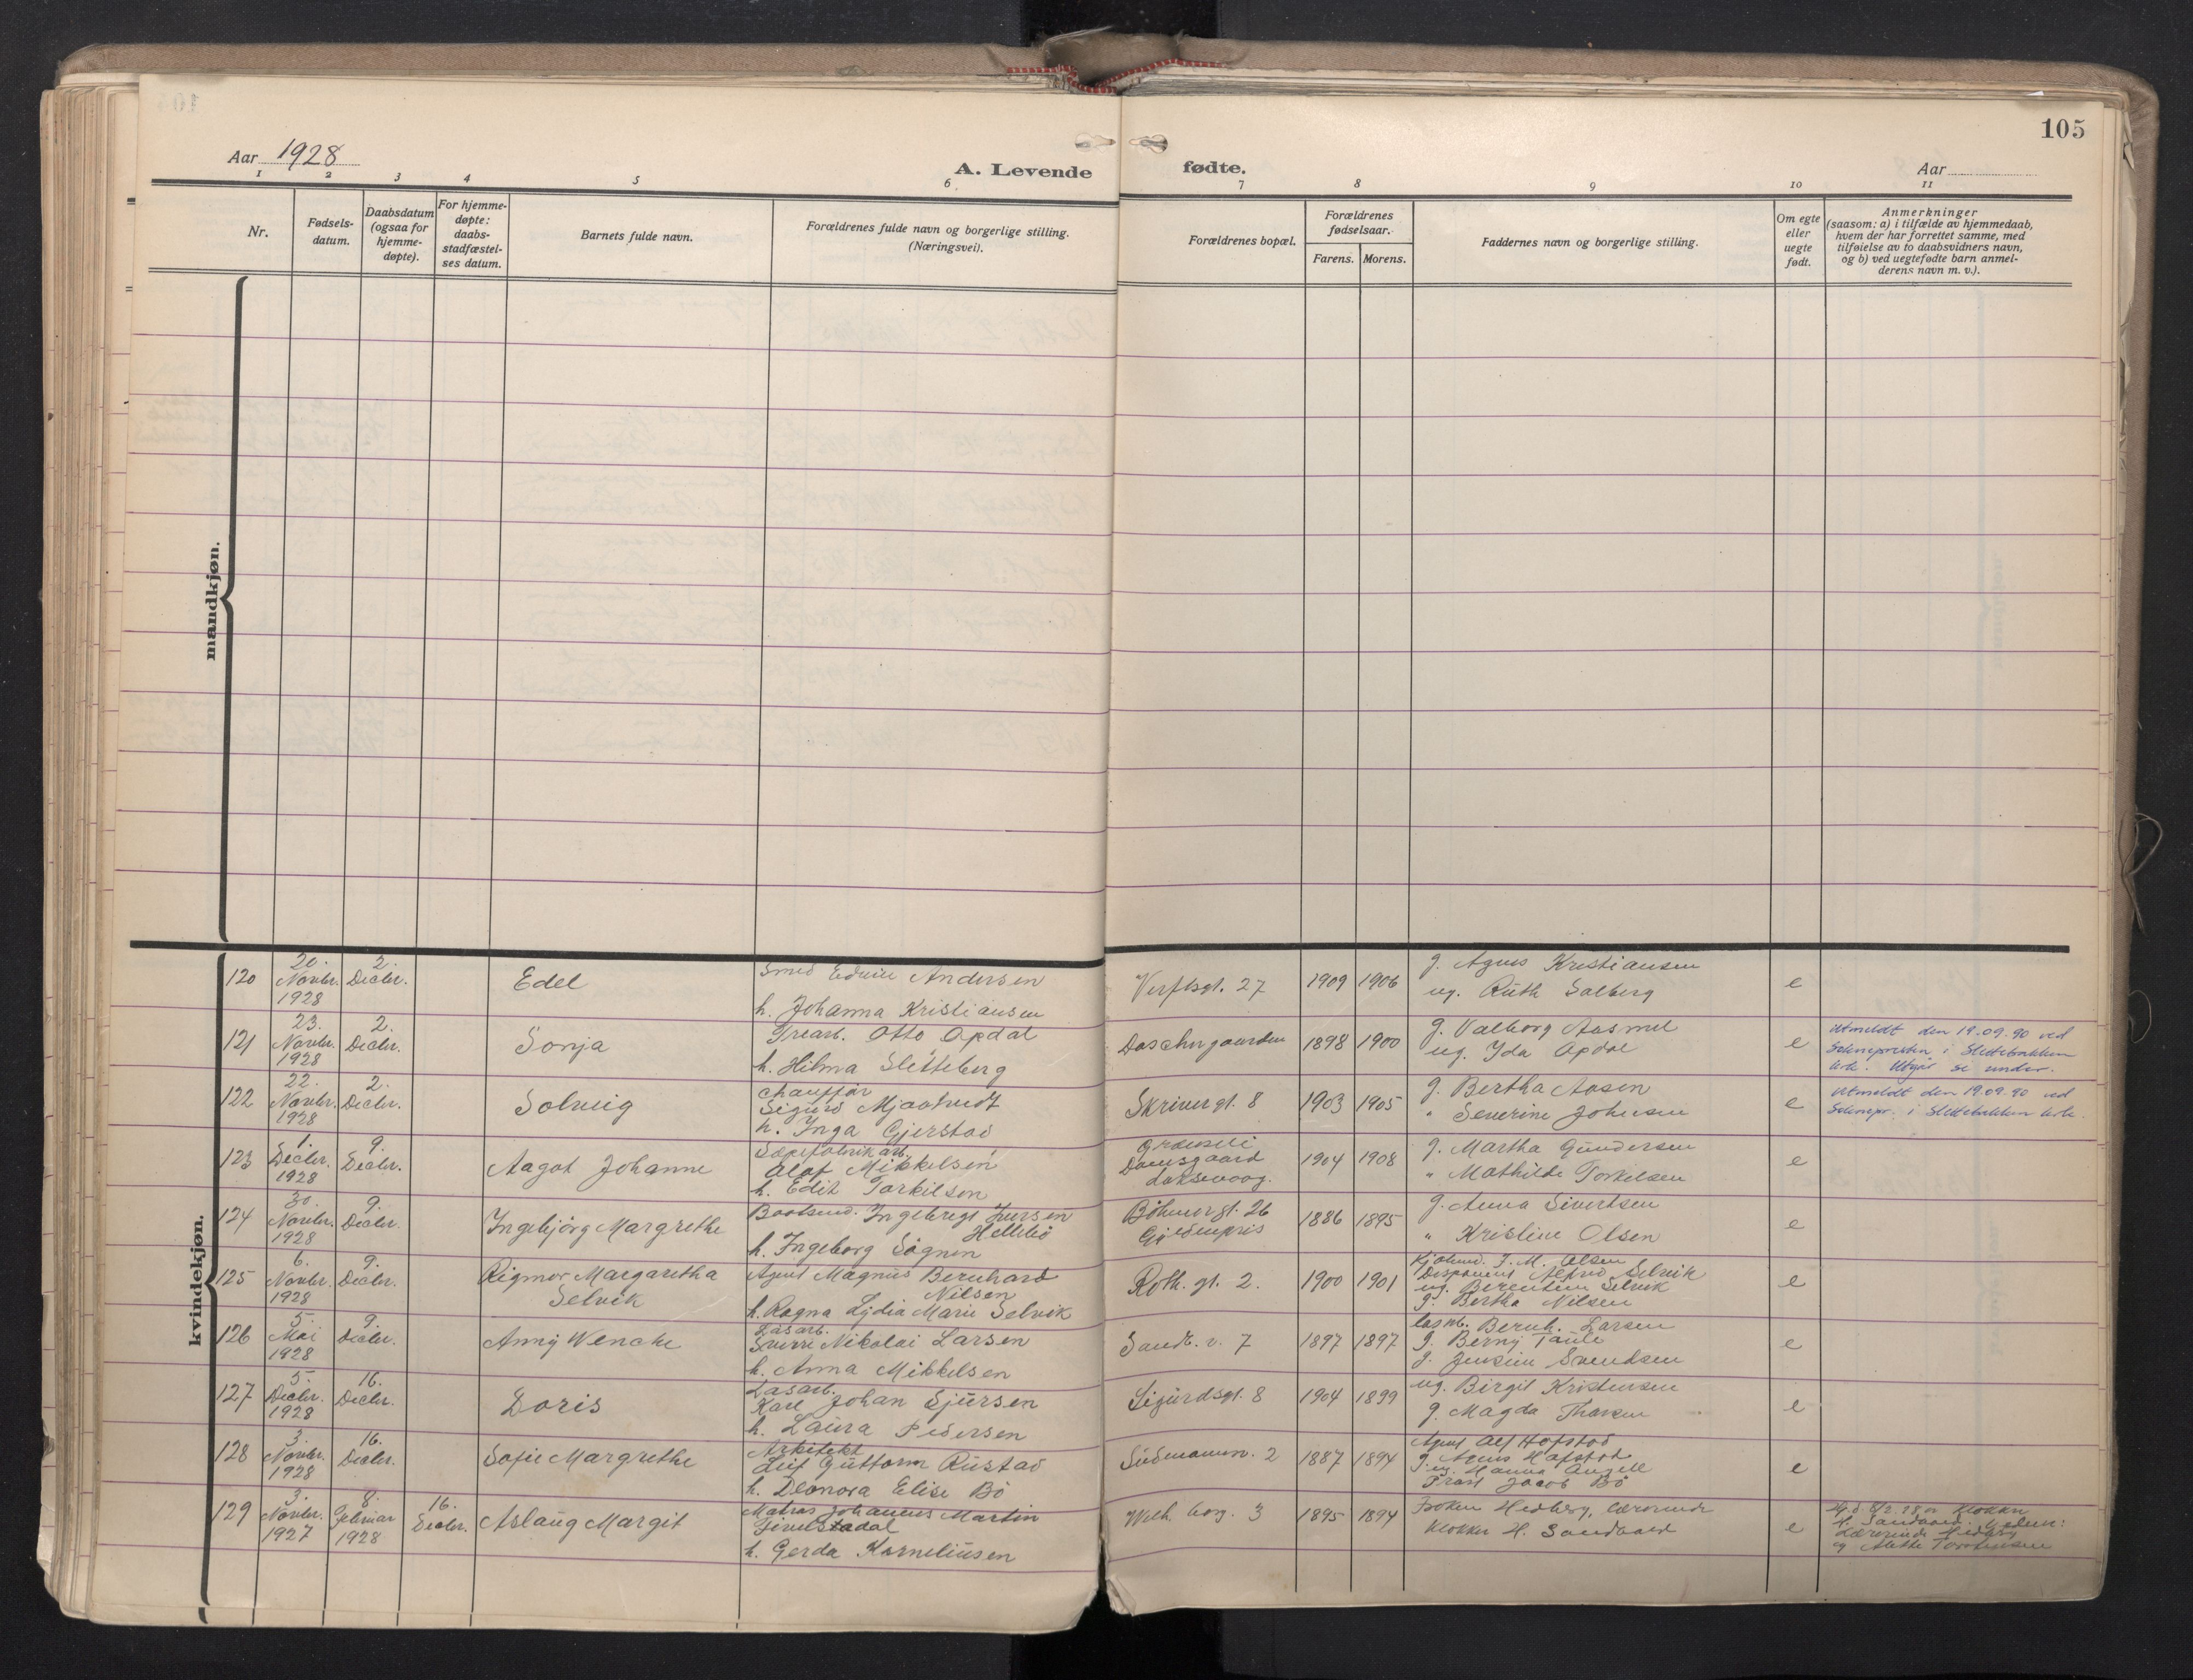 105
Aar 1928
A. Levende
fødte.
Aar
1 2 3 4 5 6 7 8 9 10 11
Nr.
Fødsels-
datum.
Daabsdatum
(ogsaa for
hjemme-
døpte).
For hjemme-
døpte:
daabs-
stadfæstel-
ses datum.
Barnets fulde navn.
Forældrenes fulde navn og borgerlige stilling.
(Næringsvei).
Forældrenes bopæl.
Forældrenes
fødselsaar.
Farens. Morens.
Faddernes navn og borgerlige stilling.
Om egte
eller
uegte
født.
Anmerkninger
(saasom: a) i tilfælde av hjemmedaab,
hvem der har forrettet samme, med
tilføielse av to daabsvidners navn,
og b) ved uegtefødte barn anmel-
derens navn m. v.).
mandkjøn.
kvindekjøn.
120
20.
Novbr.
1928
2.
Decbr.
Edel
Smed Edvin Andersen
h. Johanna Kristiansen
Verftsgt. 27
1909 1906
g. Agnes Kristiansen
ug. Ruth Solberg
e
121
23.
Novbr.
1928
2.
Decbr.
Sonja
Træarb. Otto Opdal
h. Hilma Sletteberg
1898 1900
g. Valborg Aasmul
ug. Ida Opdal
e
Utmeldt den 19.09.90 ved
Soknepresten i Slettebakken
122
22.
Novbr.
1928
2.
Decbr.
Solveig
Chauffør
Sigurd Mjaatvedt
h. Inga Gjerstad
Skrivergt. 8
1903 1905
g. Bertha Aasen
" Severine Johnsen
e
Utmeldt den 19.09.90 ved
Soknepr. i Slettebakken
123
1.
Decbr.
1928
9.
Decbr.
Aagot Johanne
Sæpefabrikarb.
Olaf Mikkelsen
h. Edit Torkilsen
Damsgaard
Laksevaag.
1904 1908
g. Martha Gundersen
" Mathilde Torkilsen
e
124
30.
Novbr.
1928
9.
Decbr.
Ingebjörg Margrethe
Baatsmd. Ingebregt Iversen
Hellebö
h. Ingeborg Sögnen
Böhmergt. 26
Gyldenpris
1886 1895
g. Anna Sivertsen
" Kristine Olsen
e
125
6.
Novbr.
1928
9.
Decbr.
Rigmor Margaretha
Selvik
Agent Magnus Bernhard
Nilsen
h. Ragna Lydia Marie Selvik
Roth. gt. 2.
1900 1901
Kjøbmd. J. M. Olsen
Disponent Alfred Selvik
ug. Berentine Selvik
g. Bertha Nilsen
e
126
5.
Mai
1928
9.
Decbr.
Anny Wenche
Løsarb.
Sverre Nikolai Larsen
h. Anna Mikkelsen
Sandb. v. 7
1897 1897
løsarb. Bernh. Larsen
g. Berny Taule
g. Jensine Svendsen
e
127
5.
Decbr.
1928
16.
Decbr.
Doris
Løsarb.
Karl Johan Sjursen
h. Laura Pedersen
Sigurdsgt. 8
1904 1899
ug. Birgit Kristensen
g. Magda Thorsen
e
128
3.
Novbr.
1928
16.
Decbr.
Sofie Margrethe
Arkitekt
Leif Guttorm Rustad
h. Deonora Elise Bö
Südmannsv. 2
1887 1894
Agent Alf Hofstad
g. Agnes Hofstad
ug. Hanna Angell
Prost Jacob Bö
e
129
3.
Novbr.
1927
8.
Februar
1928
16.
Decbr.
Aslaug Margit
Matros Johannes Martin
h. Gerda Korneliusen
Welh. bog. 3
1895 1894
Frøken Hedberg, lærerinde
Klokker H. Sandaard
e
Hj.d. 8/2 28 av Klokker
H. Sandaard. Vidner:
Lærerinde Hedberg
og Alette Torstensen